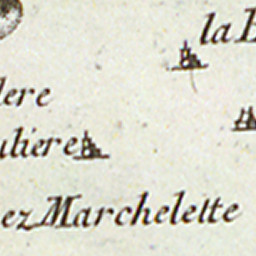 la B
lere
uliere
ez Marchelette